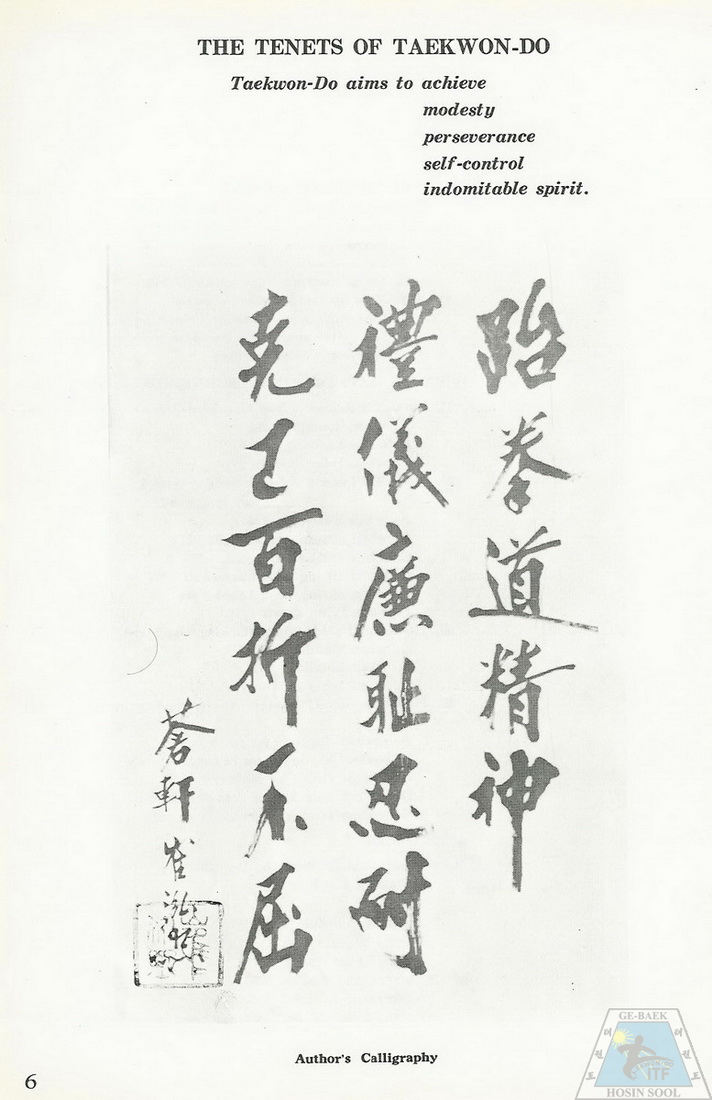 THE TENETS OF TAEKWON-DO
Taekwon-Do aims to achieve
modesty
perseverance
self-control
indomitable spirit.
跆拳道精神
禮儀廉耻忍耐
克己百折不屈
蒼軒 崔泓熙
Author's Calligraphy
6
GE-BAEK
태권도
태권도
ITF
HOSIN SOOL